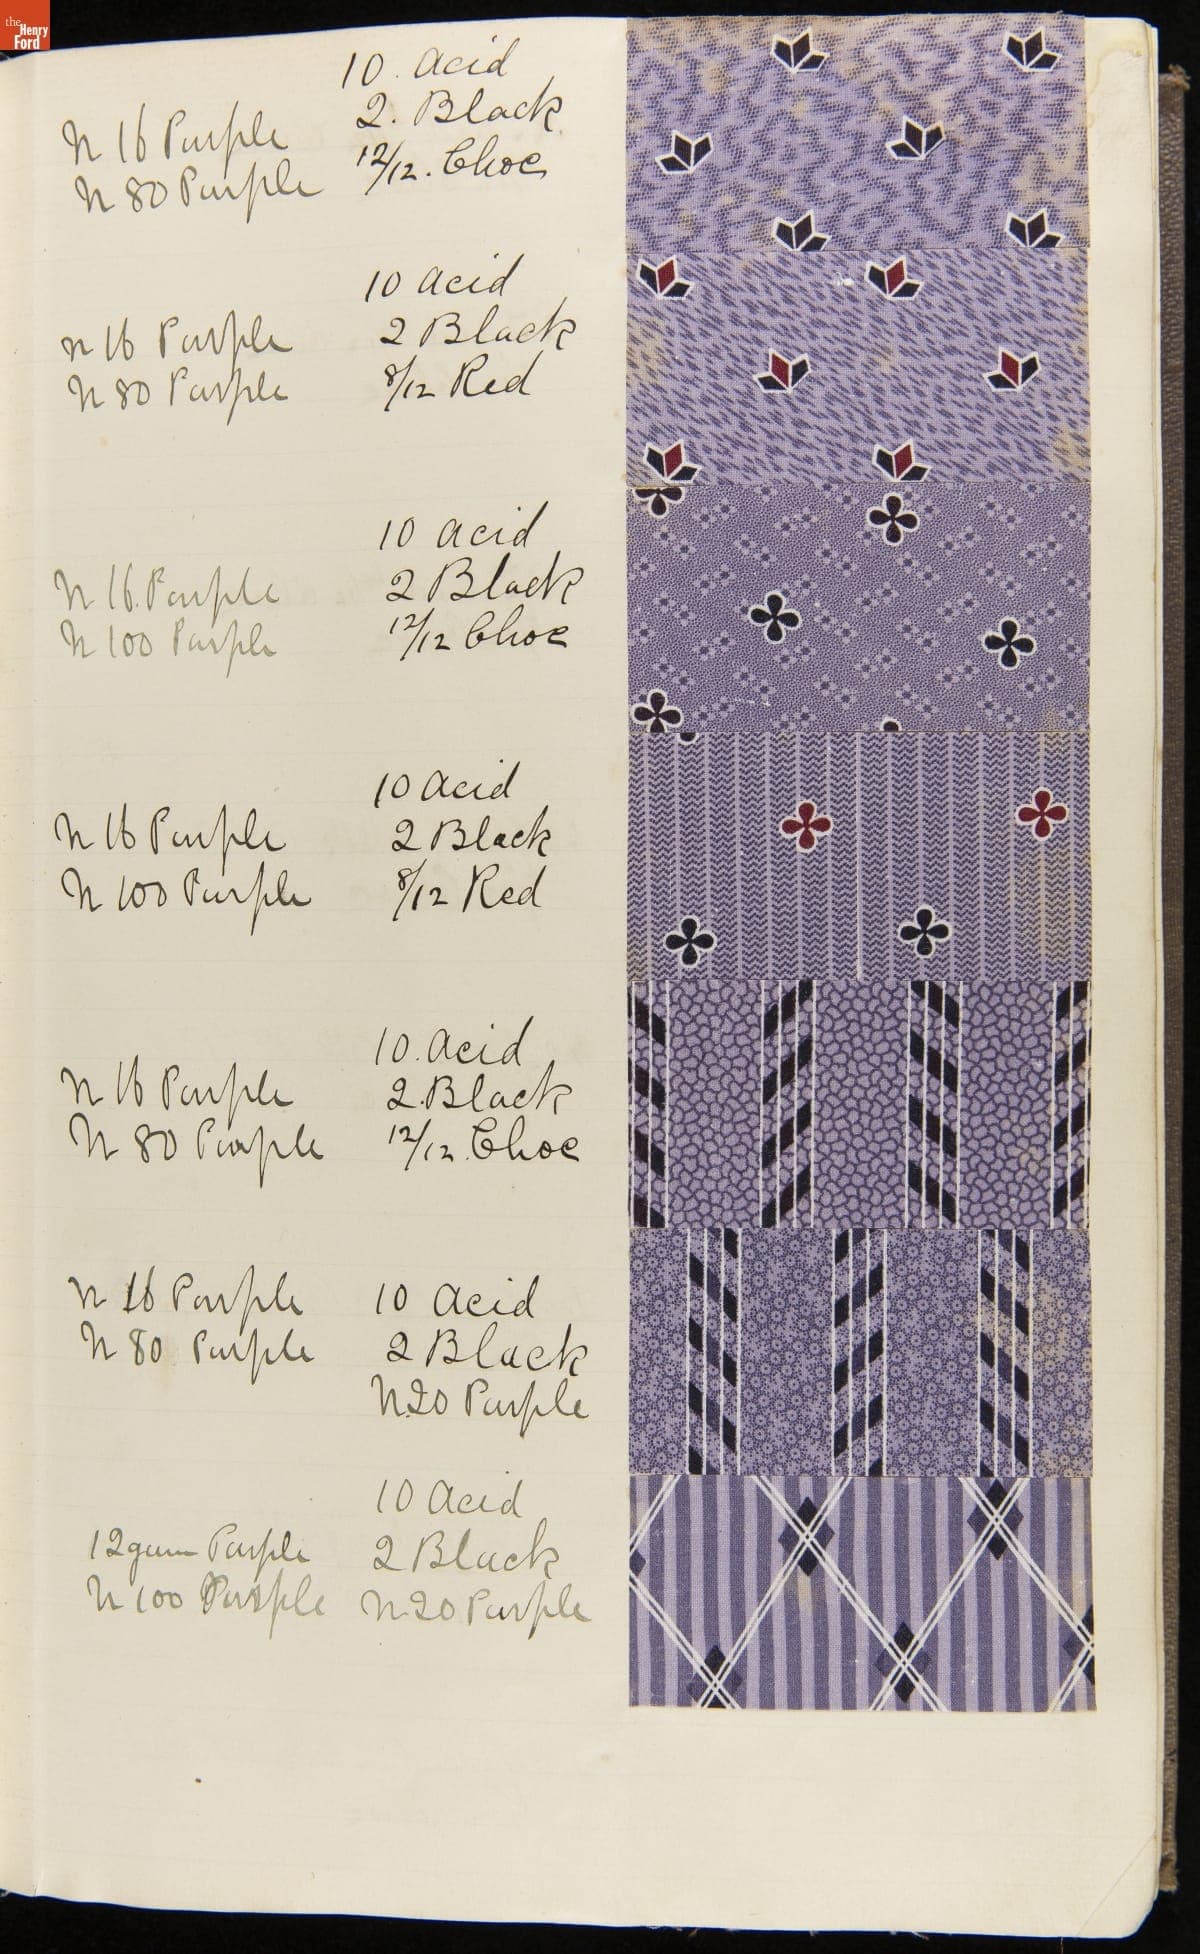 the
Henry
Ford
10. Acid
N 16 Purple
2. Black
N 80 Purple
12/12. Choc
10 Acid
N 16 Purple
2 Black
N 80 Purple
8/12 Red
10 Acid
N 16. Purple
2 Black
N 100 Purple
12/12 Choc
10 Acid
N 16 Purple
2 Black
N 100 Purple
8/12 Red
10. Acid
N 16 Purple
2. Black
N 80 Purple
12/12. Choc
N 16 Purple
10 Acid
N 80 Purple
2 Black
N.20 Purple
10 Acid
12 gum Purple
2 Black
N 100 Purple
N.20 Purple